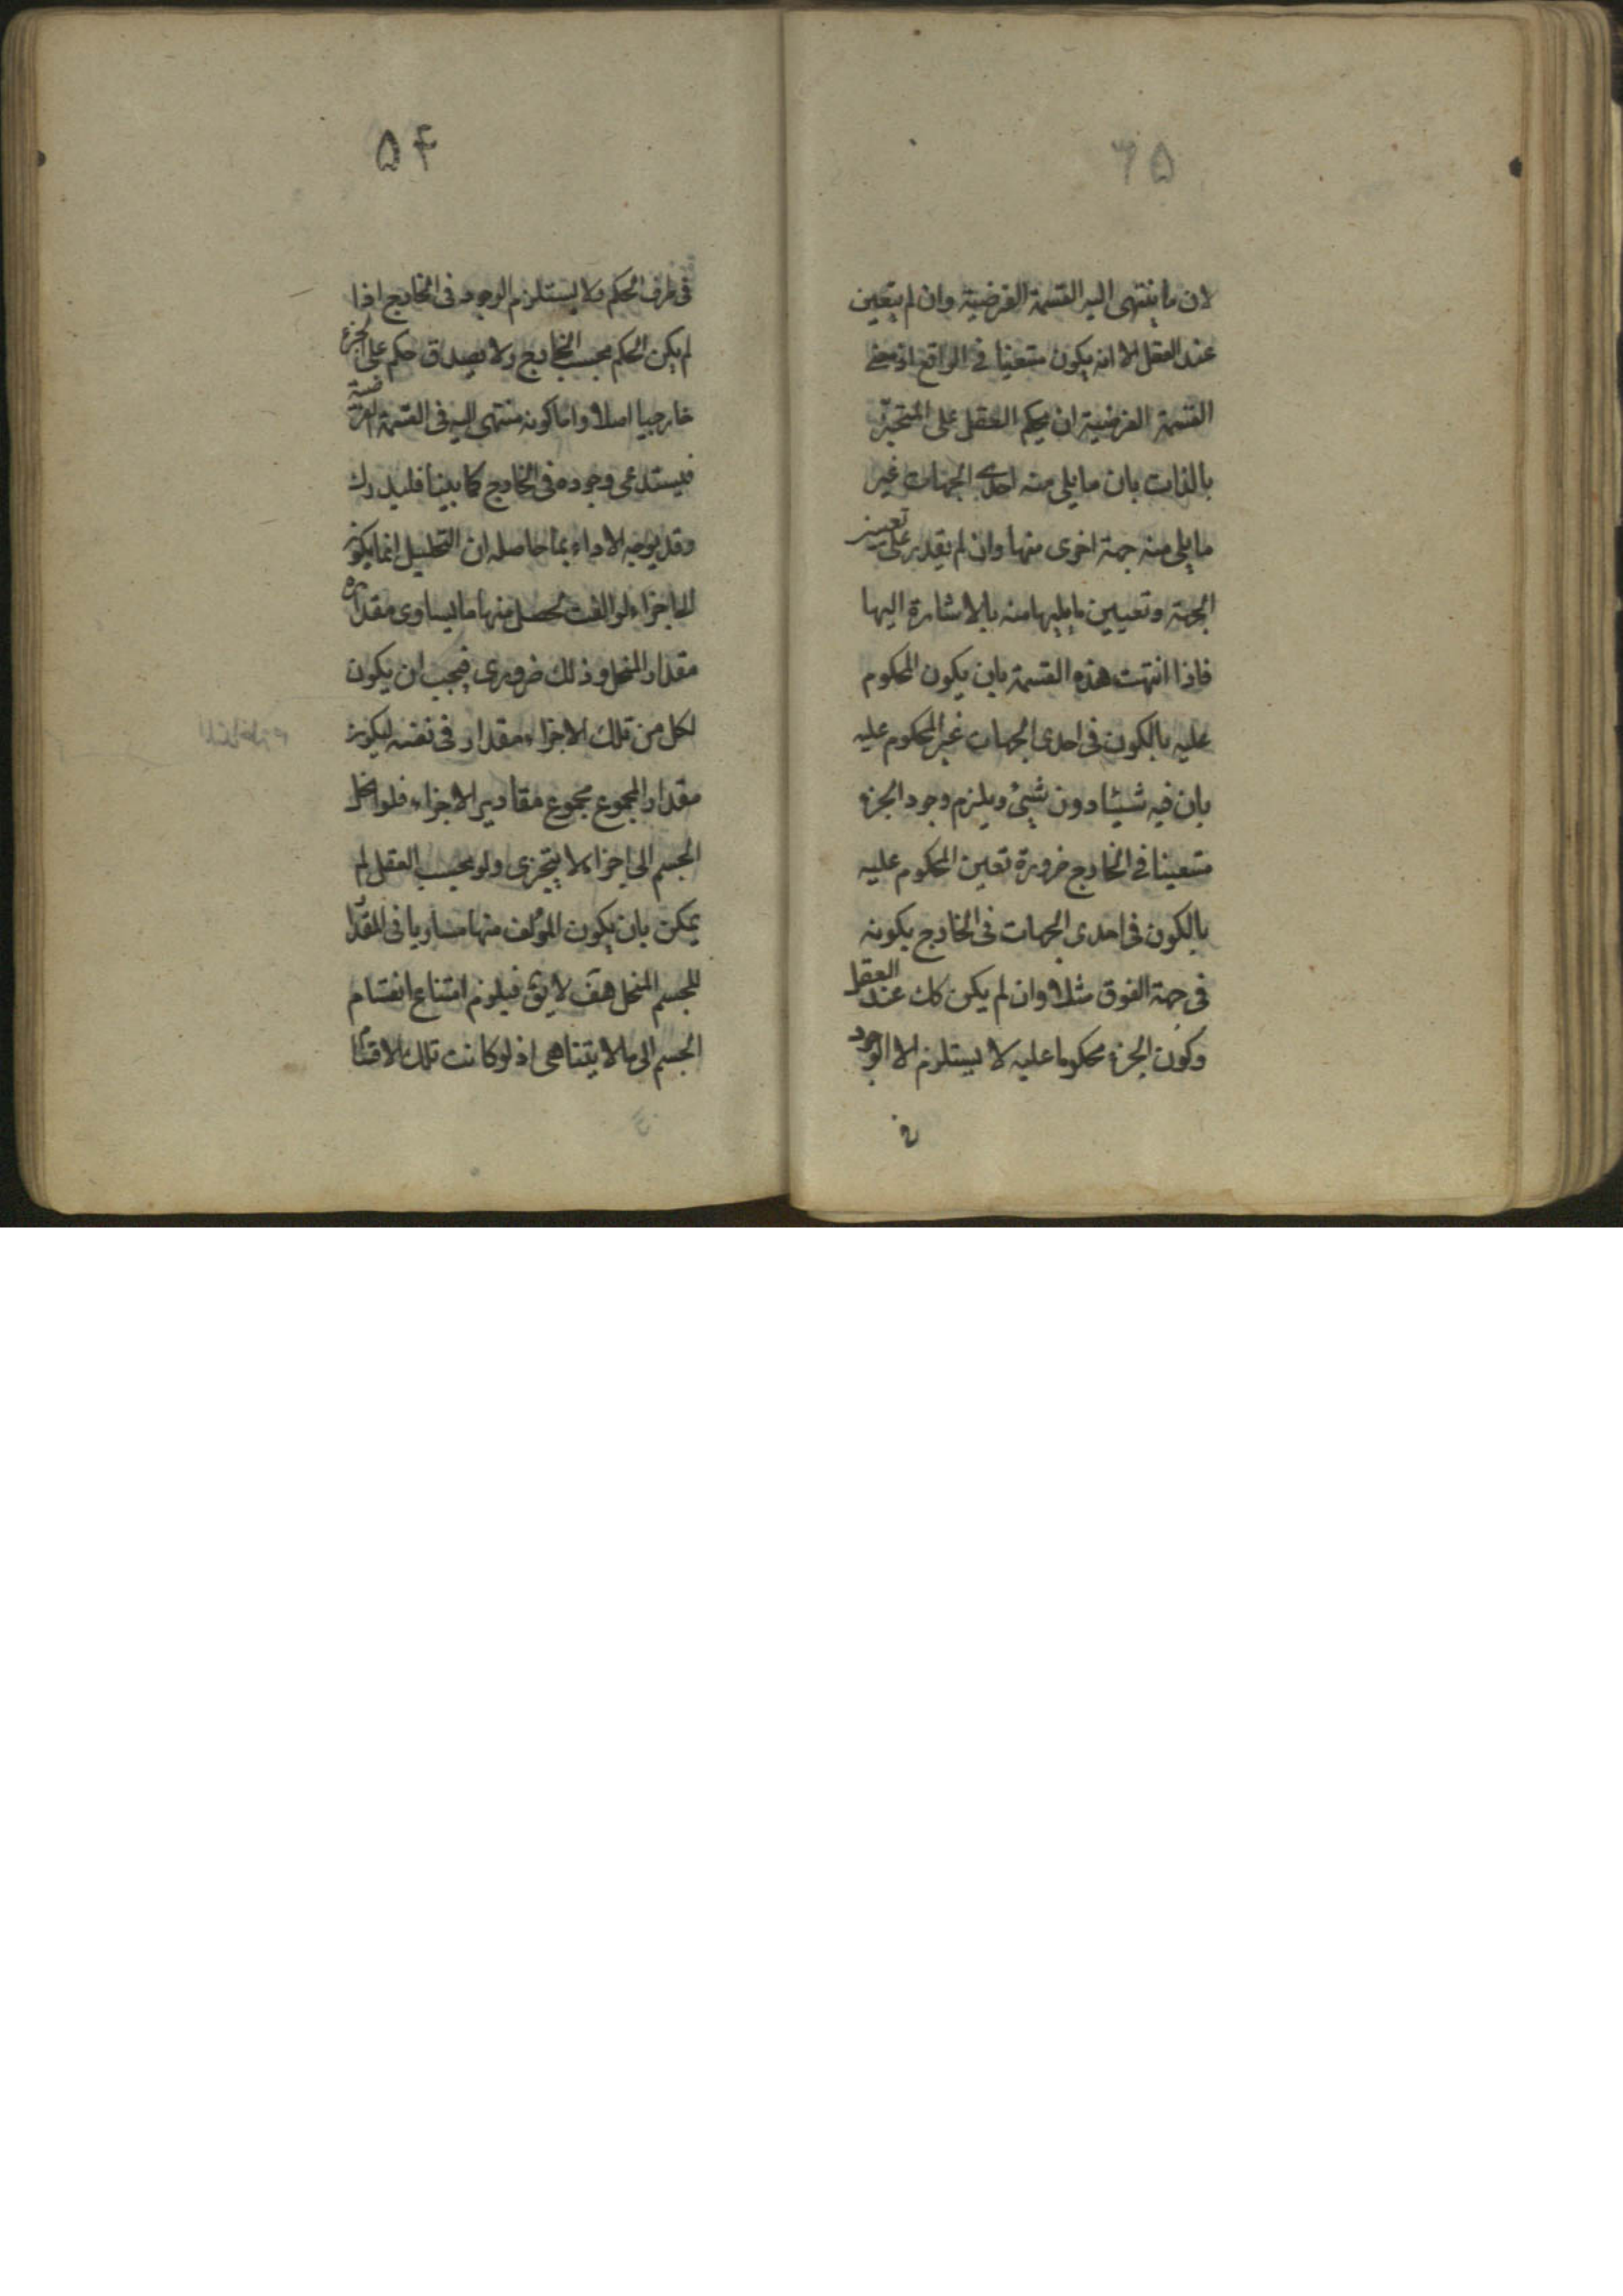 ٦٥
لان ما ينتهى اليه القسمة الفرضية وان لم يتعين
عند العقل الا انه يكون متعينا فى الواقع اذ معنى
القسمة الفرضية ان يحكم العقل على المتحيز
بالذات بان ما يلى منه احدى الجهات غير
ما يلى منه جهة اخرى منها وان لم يقدر على تعيين
الجهة وتعيين ما يليها منه بالاشارة اليها
فاذا انتهت هذه القسمة بان يكون المحكوم
عليه بالكون فى احدى الجهات غير المحكوم عليه
بان فيه شيئا دون شيئ ويلزم وجود الجزء
متعينا فى الخارج ضرورة تعين المحكوم عليه
بالكون فى احدى الجهات فى الخارج بكونه
فى جهة الفوق مثلا وان لم يكن كك عند العقل
وكون الجزء محكوما عليه لا يستلزم الا الوجود
فى
٥۴
فى ظرف الحكم ولا يستلزم الوجود فى الخارج اذا
لم يكن الحكم بحسب الخارج ولا يصدق حكم على الجزء
خارجيا اصلا واما كونه منتهى اليه فى القسمة الفرضية
فيستدعى وجوده فى الخارج كما بينا فليدرك
وقد يوجه الاداء بما حاصله ان التحليل انما يكون
الى اجزاء لو الفت لحصل منها ما يساوى مقداره
مقدار المنحل وذلك ضرورى فيجب ان يكون
لكل من تلك الاجزاء مقدار فى نفسه ليكون
مقدار المجموع مجموع مقادير الاجزاء فلو انحل
الجسم الى اجزاء لا يتجزى ولو بحسب العقل لم
يمكن بان يكون المؤلف منها مساويا فى المقدار
للجسم المنحل هف لا يق فيلزم امتناع انقسام
الجسم الى ما لا يتناهى اذ لو كانت تلك الاقسام